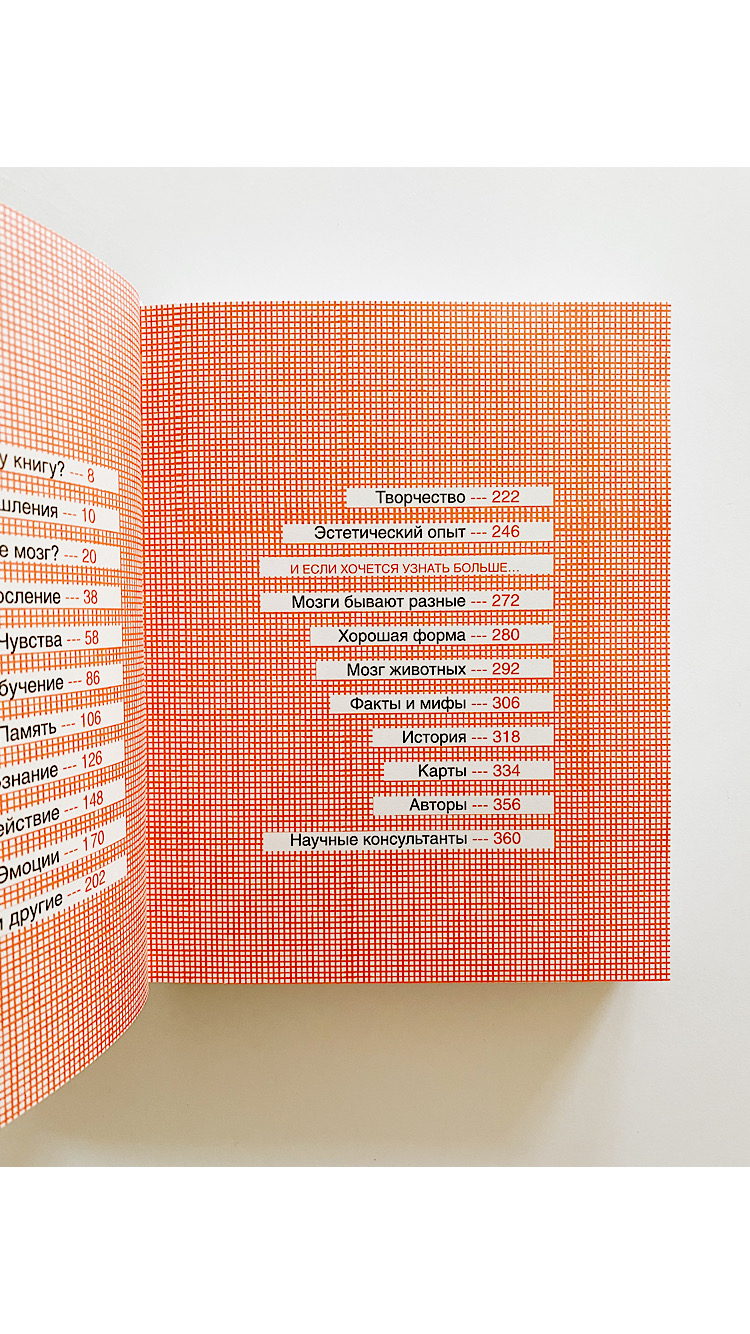 у книгу? --- 8
шления --- 10
е мозг? --- 20
осление --- 38
Чувства --- 58
бучение --- 86
Память --- 106
ознание --- 126
ействие --- 148
Эмоции --- 170
и другие --- 202
Творчество --- 222
Эстетический опыт --- 246
И ЕСЛИ ХОЧЕТСЯ УЗНАТЬ БОЛЬШЕ...
Мозги бывают разные --- 272
Хорошая форма --- 280
Мозг животных --- 292
Факты и мифы --- 306
История --- 318
Карты --- 334
Авторы --- 356
Научные консультанты --- 360